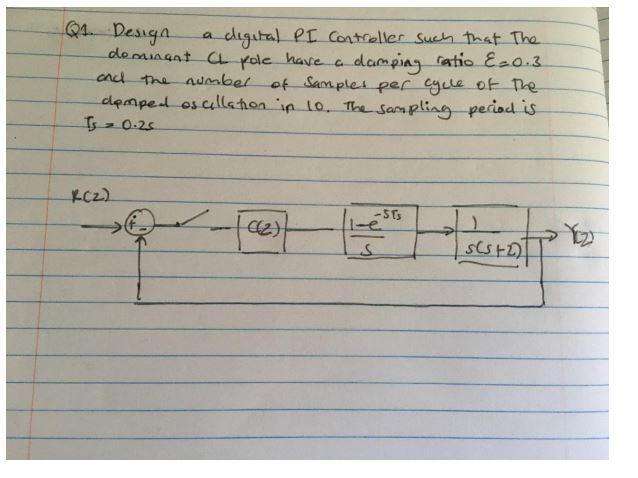 Q1. Design a digital PI Controller such that The
dominant CL pole have a damping ratio ξ=0.3
and the number of samples per cycle of the
damped oscillation in 10. The sampling period is
Ts = 0.2s
R(z)
+
-
C(z)
1-e^-STs
s
1
s(s+2)
Y(z)